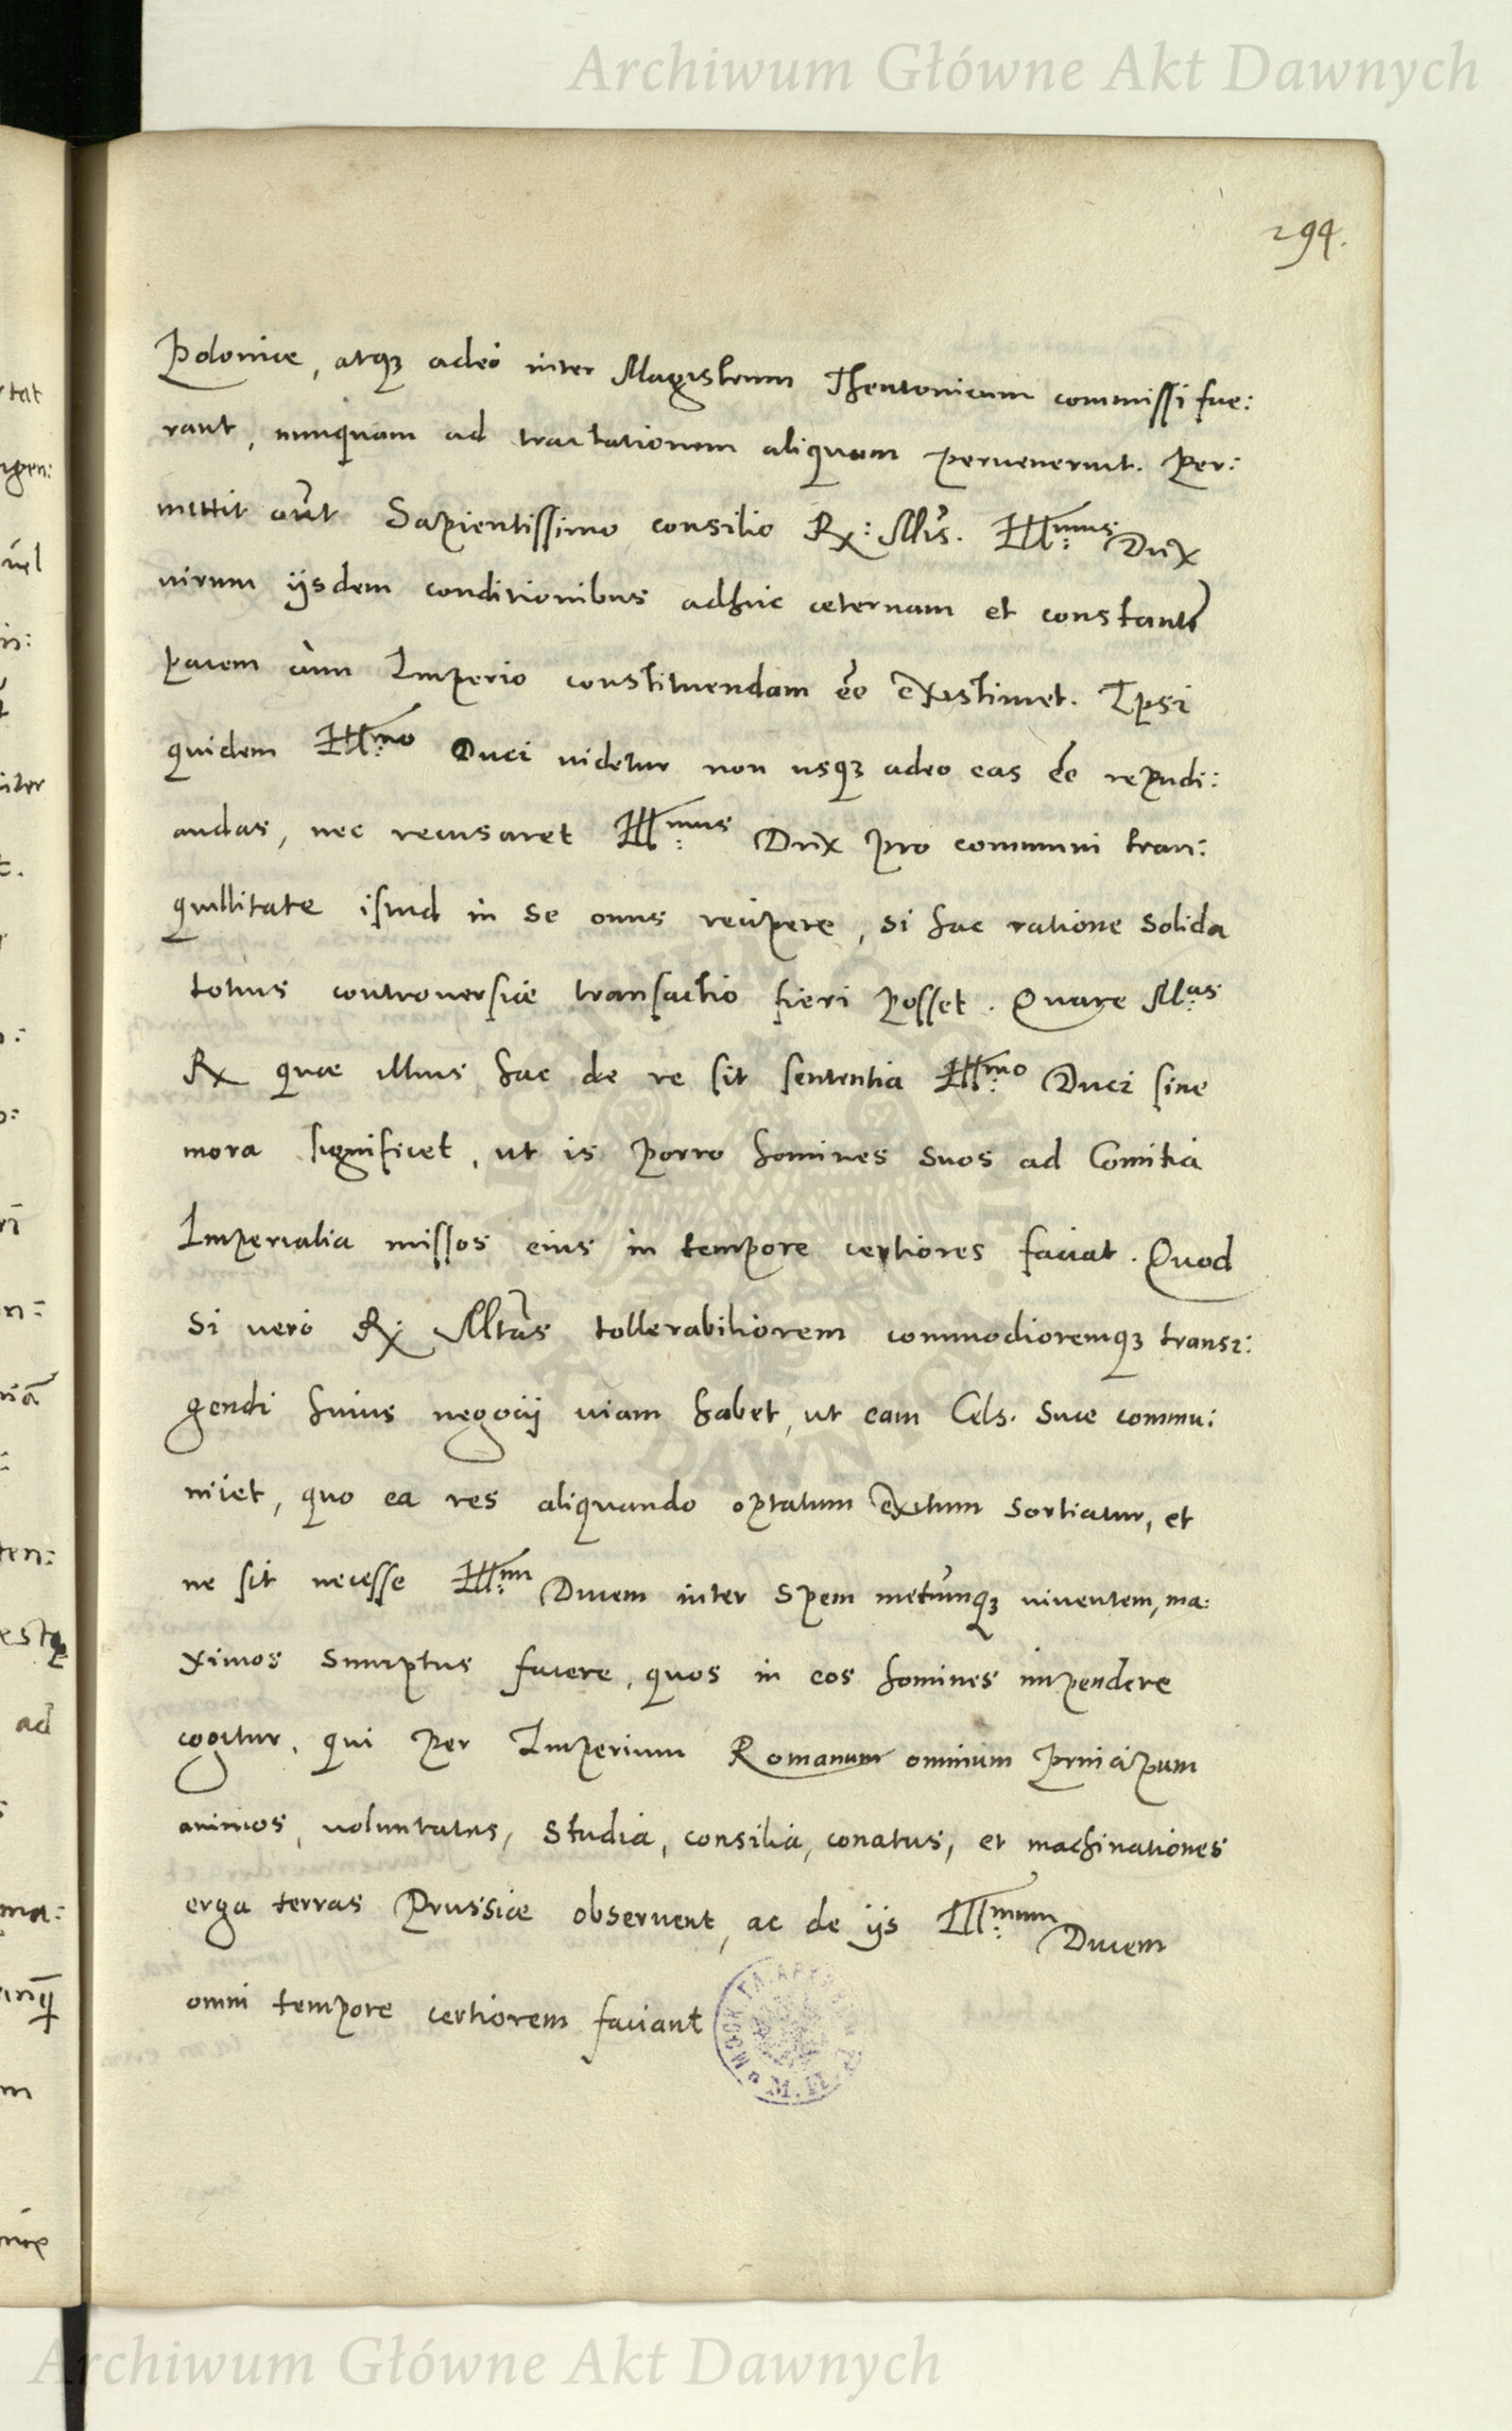 Archiwum Główne Akt Dawnych
294.
Poloniae, atq3 adeò inter Magistrum Theutonicum commissi fue:
rant, nunquam ad tractationem aliquam peruenerint. Per:
mittit aũt Sapientissimo consilio Rx: Mtis. Illmus Dux
uirum ijsdem conditionibus adhuc aeternam et constantẽ
pacem cùm Imperio constituendam ẽe existimet. Ipsi
quidem Illmo Duci uidetur non usq3 adeo eas ẽe repudi:
andas, nec recusaret Illmus Dux pro communi tran:
quillitate istud in se onus recipere, si hac ratione solida
totius controuersiae transactio fieri posset. Quare Mas
Rx quae illius hac de re sit sententia Illmo Duci sine
mora significet, ut is porro homines suos ad Comitia
Imperialia missos eius in tempore certiores faciat. Quod
si uerò Rx: Mtas tollerabiliorem commodioremq3 transi:
gendi huius negocij uiam habet, ut eam Cels. Suae commu:
nicet, quo ea res aliquando optatum exitum sortiatur, et
ne sit necesse Illm Ducem inter spem metumq3 uiuentem, ma:
ximos sumptus facere, quos in eos homines impendere
cogitur, qui per Imperium Romanum omnium Principum
animos, uoluntates, studia, consilia, conatus, et machinationes
erga terras Prussiae obseruent, ac de ijs Illmum Ducem
omni tempore certiorem faciant
Archiwum Główne Akt Dawnych